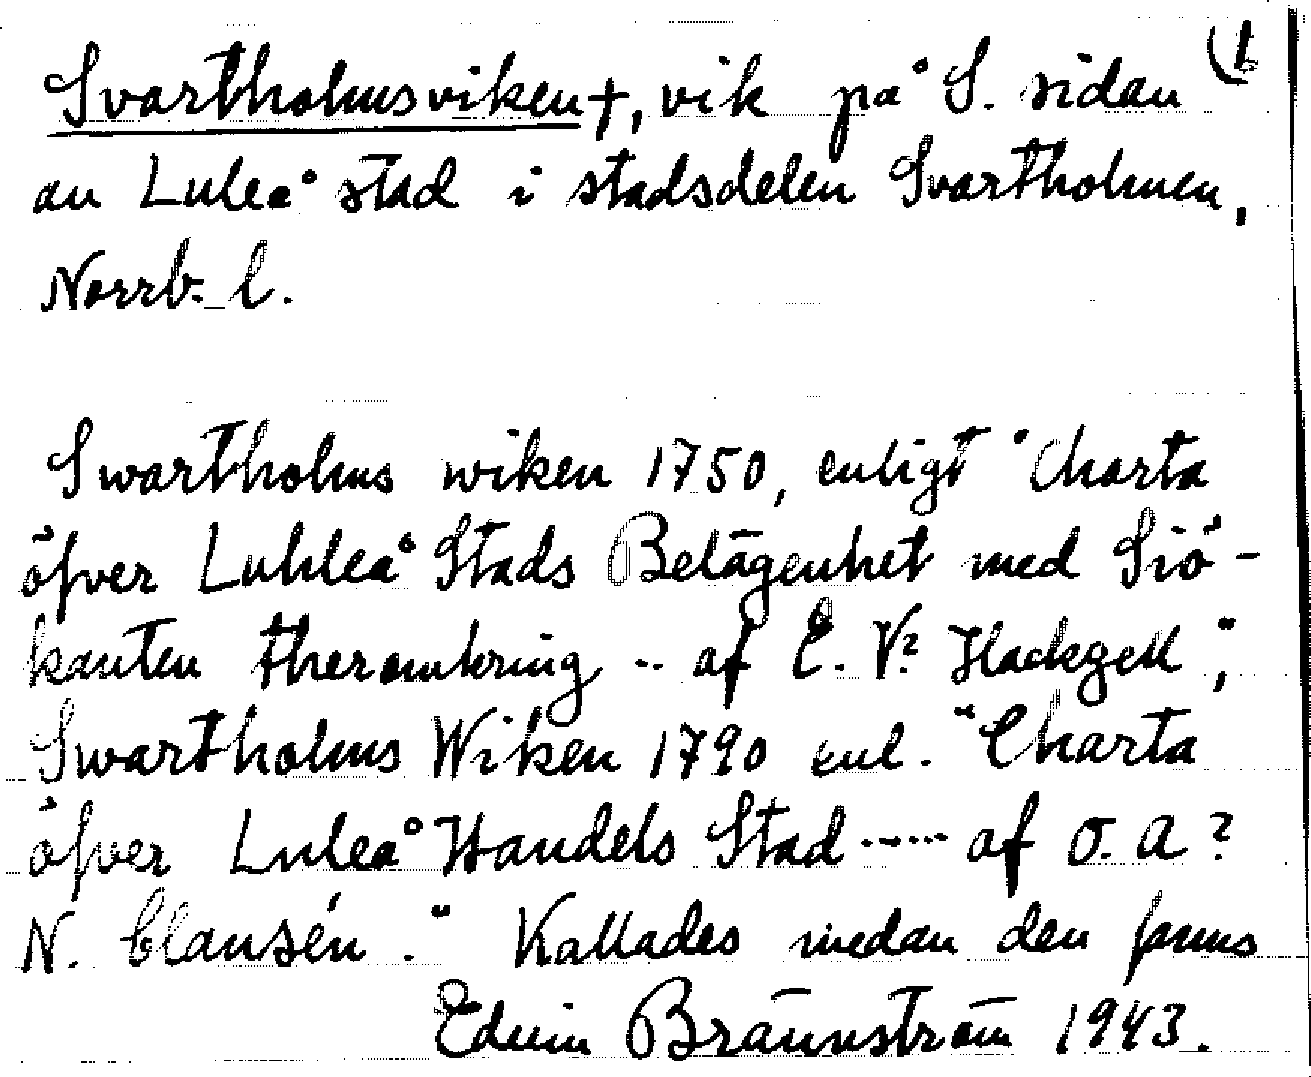 Svartholmsviken †, vik på S. sidan (1
av Luleå stad i stadsdelen Svartholmen,
Norrb. l.
Swartholms wiken 1750, enligt "Charta
öfver Luhleå Stads Belägenhet med Siö-
kanten theromkring -- af E. V? Hackzell";
Swartholms Wiken 1790 enl. "Charta
öfver Luleå Handels Stad ..... af O. A?
N. Clausén." Kallades medan den fanns
Edvin Brännström 1943.